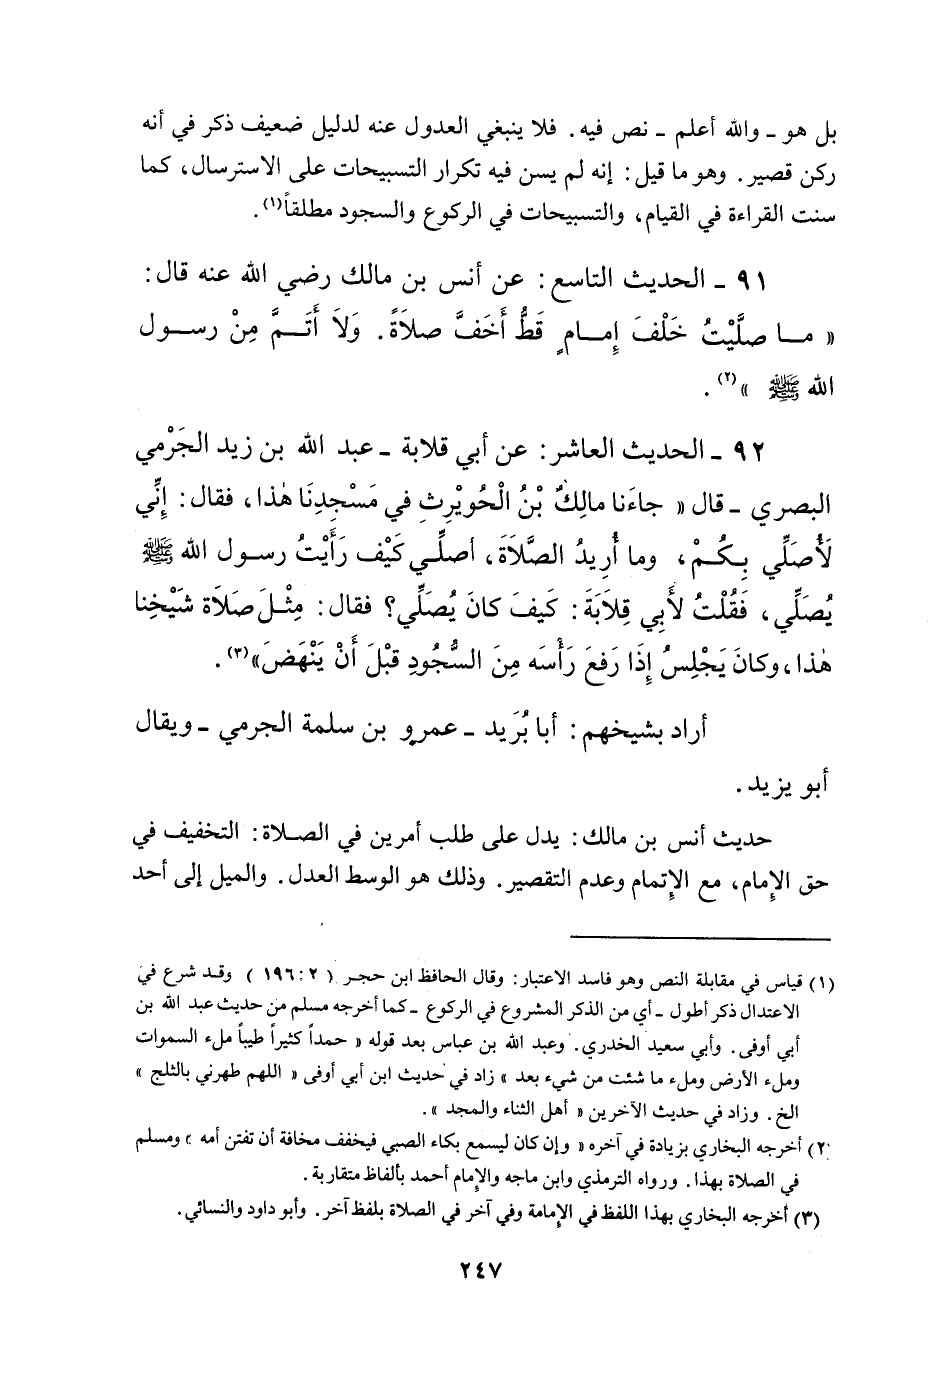 بل هو ـ والله أعلم ـ نص فيه. فلا ينبغي العدول عنه لدليل ضعيف ذكر في أنه
ركن قصير. وهو ما قيل: إنه لم يسن فيه تكرار التسبيحات على الاسترسال، كما
سنت القراءة في القيام، والتسبيحات في الركوع والسجود مطلقاً(١).
٩١ ـ الحديث التاسع: عن أنس بن مالك رضي الله عنه قال:
« مـا صلَّيْتُ خَلْفَ إِمـامٍ قَطُّ أَخَفَّ صلاَةً. وَلاَ أَتَـمَّ مِنْ رسـول
الله ﷺ »(٢).
٩٢ ـ الحديث العاشر: عن أبي قلابة ـ عبد الله بن زيد الجَرْمي
البصري ـ قال « جاءَنا مالِكُ بْنُ الْحُوَيْرِثِ في مَسْجِدِنَا هٰذا، فقال: إِنِّي
لَأُصَلِّي بِـكُمْ، وما أُرِيدُ الصَّلَاةَ، أصلِّـي كَيْف رَأَيْتُ رسـول الله ﷺ
يُصَلِّي، فَقُلْتُ لأَبي قِلاَبَةَ: كَيفَ كانَ يُصَلِّي؟ فقال: مِثْلَ صَلاَة شَيْخِنا
هٰذا، وكانَ يَجْلِسُ إِذَا رَفعَ رَأْسَه مِنَ السُّجُودِ قبْلَ أَنْ يَنْهَضَ»(٣).
أراد بشيخهم: أبا بُرَيد ـ عمرو بن سلمة الجرمي ـ ويقال
أبو يزيد.
حديث أنس بن مالك: يدل على طلب أمرين في الصلاة: التخفيف في
حق الإمام، مع الإتمام وعدم التقصير. وذلك هو الوسط العدل. والميل إلى أحد
(١) قياس في مقابلة النص وهو فاسد الاعتبار: وقال الحافظ ابن حجر ( ٢ : ١٩٦ ) وقد شرع في
الاعتدال ذكر أطول ـ أي من الذكر المشروع في الركوع ـ كما أخرجه مسلم من حديث عبد الله بن
أبي أوفى. وأبي سعيد الخدري. وعبد الله بن عباس بعد قوله « حمداً كثيراً طيباً ملء السموات
وملء الأرض وملء ما شئت من شيء بعد » زاد في حديث ابن أبي أوفى « اللهم طهرني بالثلج »
الخ. وزاد في حديث الآخرين « أهل الثناء والمجد ».
(٢) أخرجه البخاري بزيادة في آخره « وإن كان ليسمع بكاء الصبي فيخفف مخافة أن تفتن أمه » ومسلم
في الصلاة بهذا. ورواه الترمذي وابن ماجه والإمام أحمد بألفاظ متقاربة.
(٣) أخرجه البخاري بهذا اللفظ في الإمامة وفي آخر في الصلاة بلفظ آخر. وأبو داود والنسائي.
٢٤٧